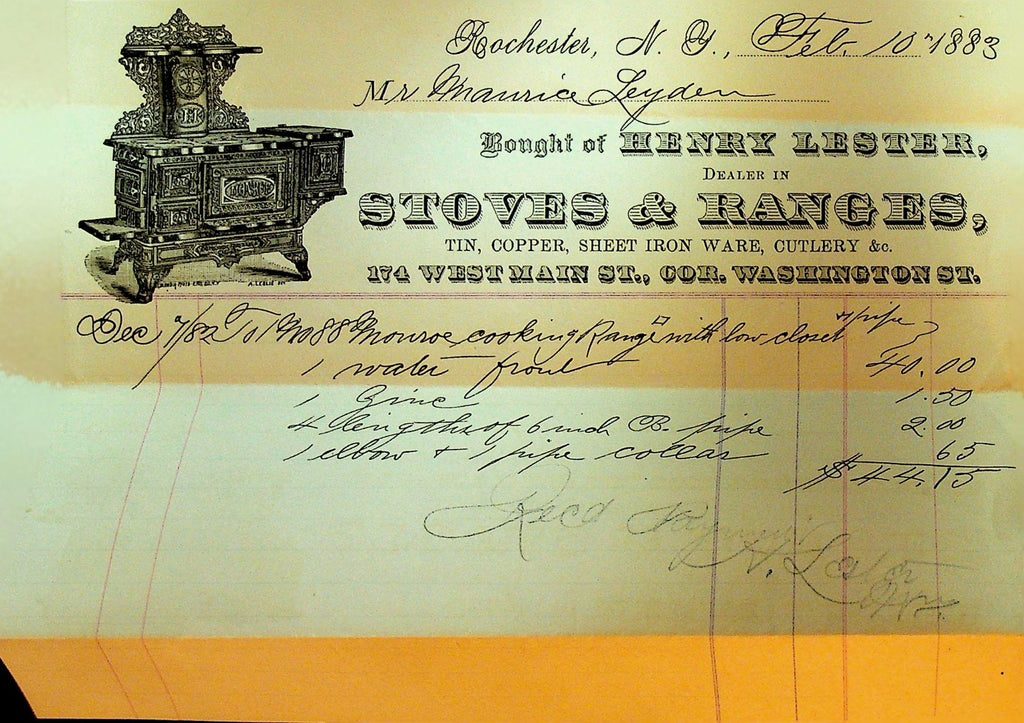 Rochester, N. Y., Feb. 10th 1883
Mr Maurice Leyden
Bought of HENRY LESTER,
DEALER IN
STOVES & RANGES,
TIN, COPPER, SHEET IRON WARE, CUTLERY &c.
174 WEST MAIN ST., COR. WASHINGTON ST.
Dec 7/82 To 1 No 88 Monroe cooking Range with low closet & pipe
1 water front 40.00
1 Zinc 1.50
4 lengths of 6 inch pipe 2.00
1 elbow & 1 pipe collar 65
$44.15
Recd Payment
H. Lester